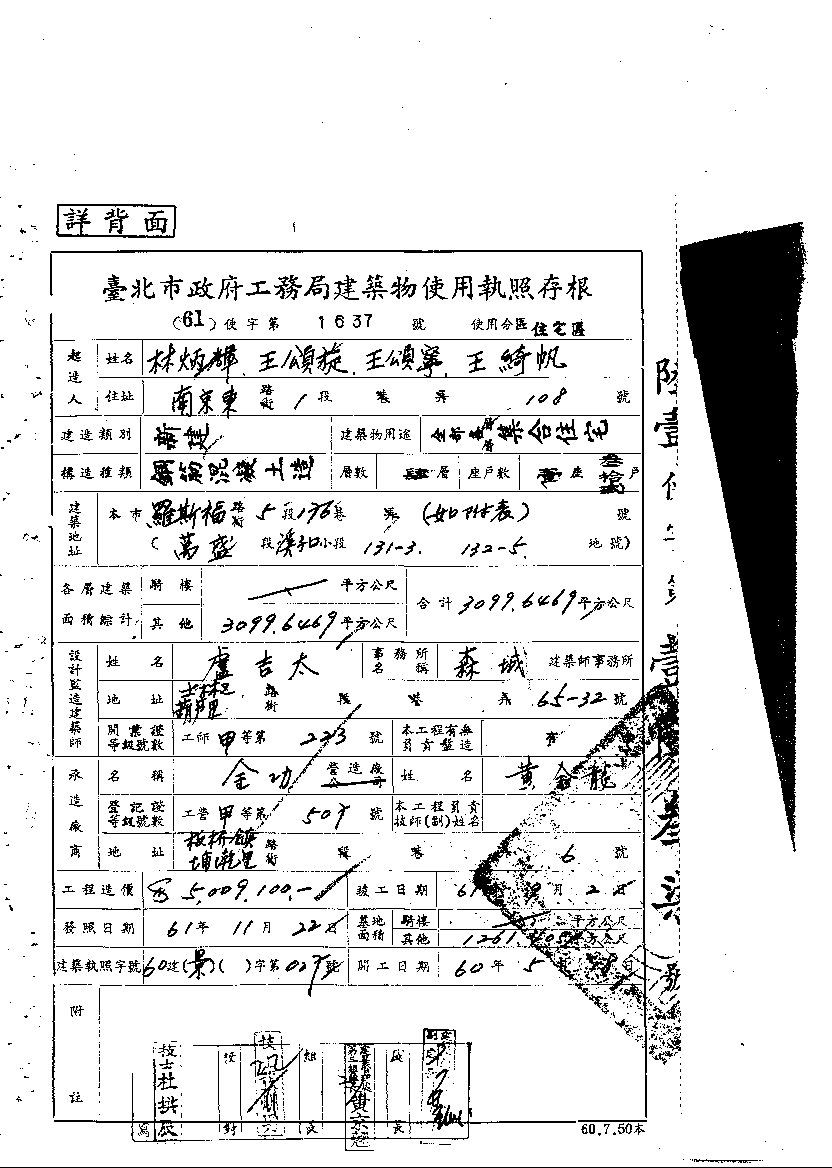 詳背面
臺北市政府工務局建築物使用執照存根
(61)使字第 1637 號 使用分區 住宅區
起造人 姓名 林炳輝、王頌旋、王頌寧、王綺帆
住址 南京東 路街 1 段 巷 弄 108 號
建造類別 新建 建築物用途 全部 集合住宅
構造種類 鋼筋混凝土造 層數 肆層 座戶數 壹座 叁拾 戶
建築地址 本市 羅斯福 路街 5 段 176 巷 弄 (如附表) 號
(萬盛 段 溪子口 小段 131-3. 132-5. 地號)
各層建築面積綜計 騎樓 平方公尺 合計 3099.6469 平方公尺
其他 3099.6469 平方公尺
設計監造建築師 姓名 盧吉太 事務所名稱 森城 建築師事務所
地址 士林區葫蘆里 路街 段 巷 弄 65-32 號
開業證等級號數 工師 甲 等第 223 號 本工程有無負責監造 有
承造廠商 名稱 全功 營造廠公司 姓名 黃 龍
登記證等級號數 工營 甲 等第 507 號 本工程負責技師(副)姓名
地址 板橋鎮埔墘里 路街 段 巷 6 號
工程造價 5,009,100.- 竣工日期 61 年 月 2 日
發照日期 61 年 11 月 22 日 基地面積 騎樓 平方公尺
其他 平方公尺
建築執照字號 60 建(景)( )字第 027 號 開工日期 60 年 5 月 日
附註
技士杜拱辰
校對 組長 段長
寫
60.7.50本